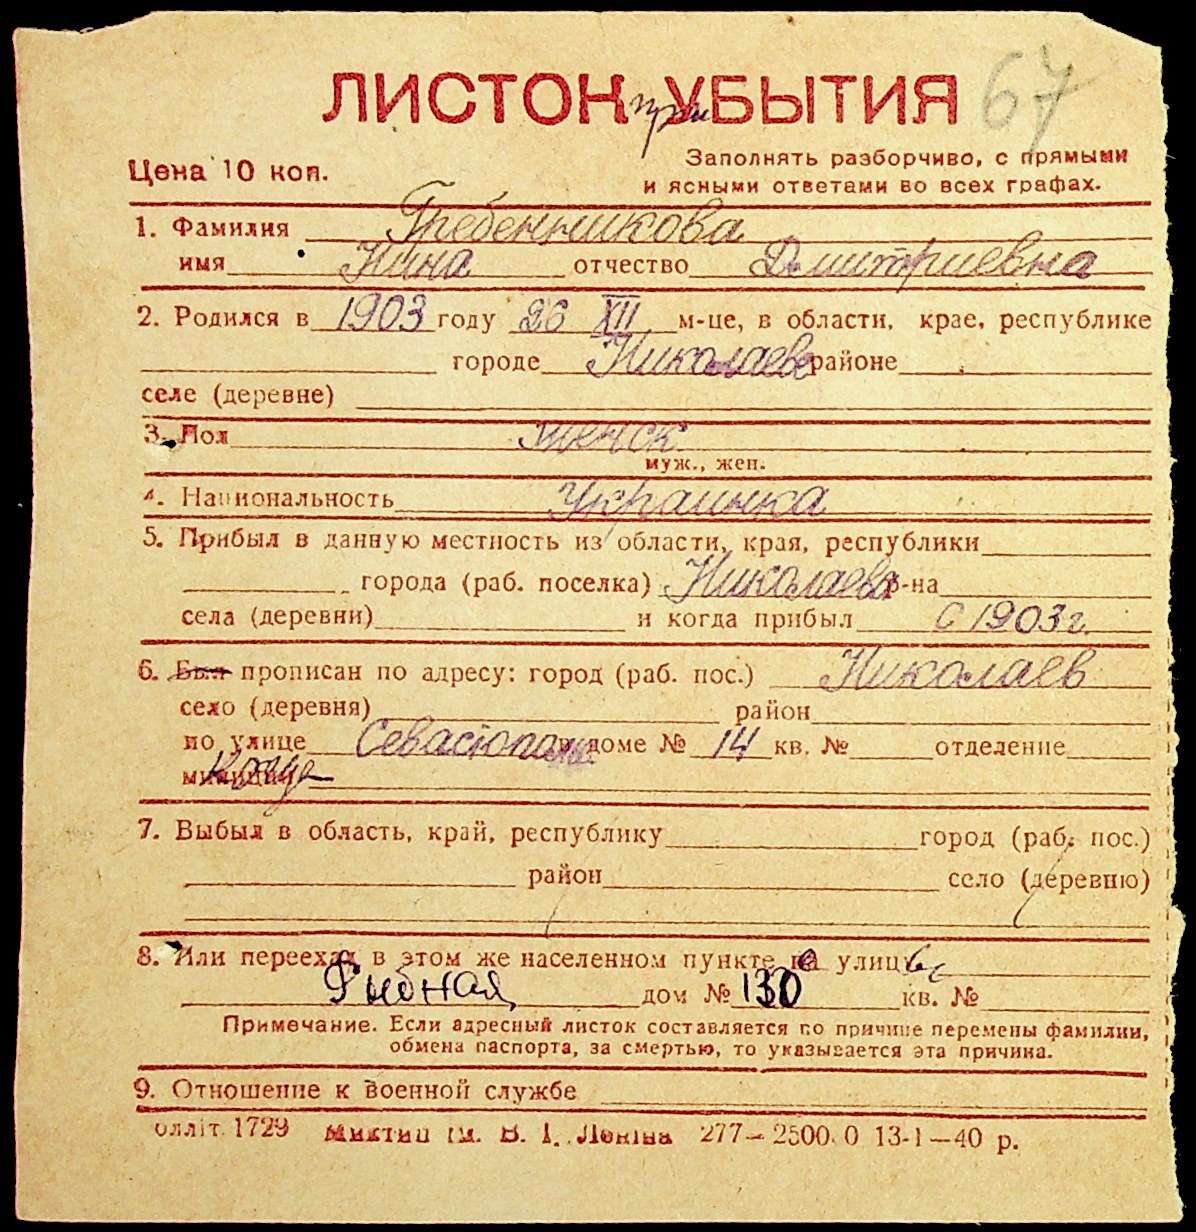 67
ЛИСТОК при УБЫТИЯ
Цена 10 коп.
Заполнять разборчиво, с прямыми
и ясными ответами во всех графах.
1. Фамилия Гребенникова
имя Нина отчество Дмитриевна
2. Родился в 1903 году 26 XII м-це, в области, крае, республике
городе Николаеве районе
селе (деревне)
3. Пол женск
муж., жен.
4. Национальность Украинка
5. Прибыл в данную местность из области, края, республики
города (раб. поселка) Николаева р-на
села (деревни) и когда прибыл с 1903 г.
6. Был прописан по адресу: город (раб. пос.) Николаев
село (деревня) район
по улице в доме № 14 кв. № отделение
милиции
7. Выбыл в область, край, республику город (раб. пос.)
район село (деревню)
8. Или переехал в этом же населенном пункте улицу
Рыбная дом № 130 кв. №
Примечание. Если адресный листок составляется по причине перемены фамилии,
обмена паспорта, за смертью, то указывается эта причина.
9. Отношение к военной службе
олліт. 1729 ім. В. І. Леніна 277—2500.0 13-I—40 р.